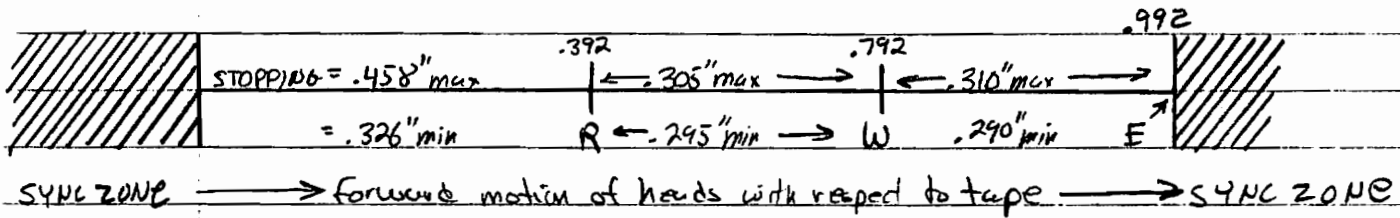 .392 .792 .992
STOPPING = .458" max ← .305" max → ← .310" max →
= .326" min R ← .295" min → W .290" min E
SYNC ZONE → forward motion of heads with respect to tape → SYNC ZONE